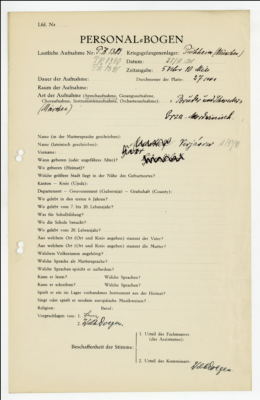 Lfd. Nr.
PERSONAL-BOGEN
Lautliche Aufnahme Nr. PK 1389 Kriegsgefangenenlager: Puchheim (München)
Datum:
Zeitangabe: 5 Uhr 10 Min
Dauer der Aufnahme: Durchmesser der Platte: 27 cm
Raum der Aufnahme:
Art der Aufnahme (Sprechaufnahme, Gesangsaufnahme,
Choraufnahme, Instrumentenaufnahme, Orchesteraufnahme):
(Märchen)
Name (in der Muttersprache geschrieben):
Name (lateinisch geschrieben):
Vorname:
Wann geboren (oder ungefähres Alter)?
Wo geboren (Heimat)?
Welche größere Stadt liegt in der Nähe des Geburtsortes?
Kanton — Kreis (Ujezd):
Department — Gouvernement (Gubernija) — Grafschaft (County):
Wo gelebt in den ersten 6 Jahren?
Wo gelebt vom 7. bis 20. Lebensjahr?
Was für Schulbildung?
Wo die Schule besucht?
Wo gelebt vom 20. Lebensjahr?
Aus welchem Ort (Ort und Kreis angeben) stammt der Vater?
Aus welchem Ort (Ort und Kreis angeben) stammt die Mutter?
Welchem Volksstamm angehörig?
Welche Sprache als Muttersprache?
Welche Sprachen spricht er außerdem?
Kann er lesen? Welche Sprachen?
Kann er schreiben? Welche Sprachen?
Spielt er ein im Lager vorhandenes Instrument aus der Heimat?
Singt oder spielt er modern europäische Musikweisen?
Religion: Beruf:
Vorgeschlagen von: 1.
2. Wilh. Doegen.
Beschaffenheit der Stimme:
1. Urteil des Fachmannes
(des Assistenten):
2. Urteil des Kommissars:
Wilh. Doegen.